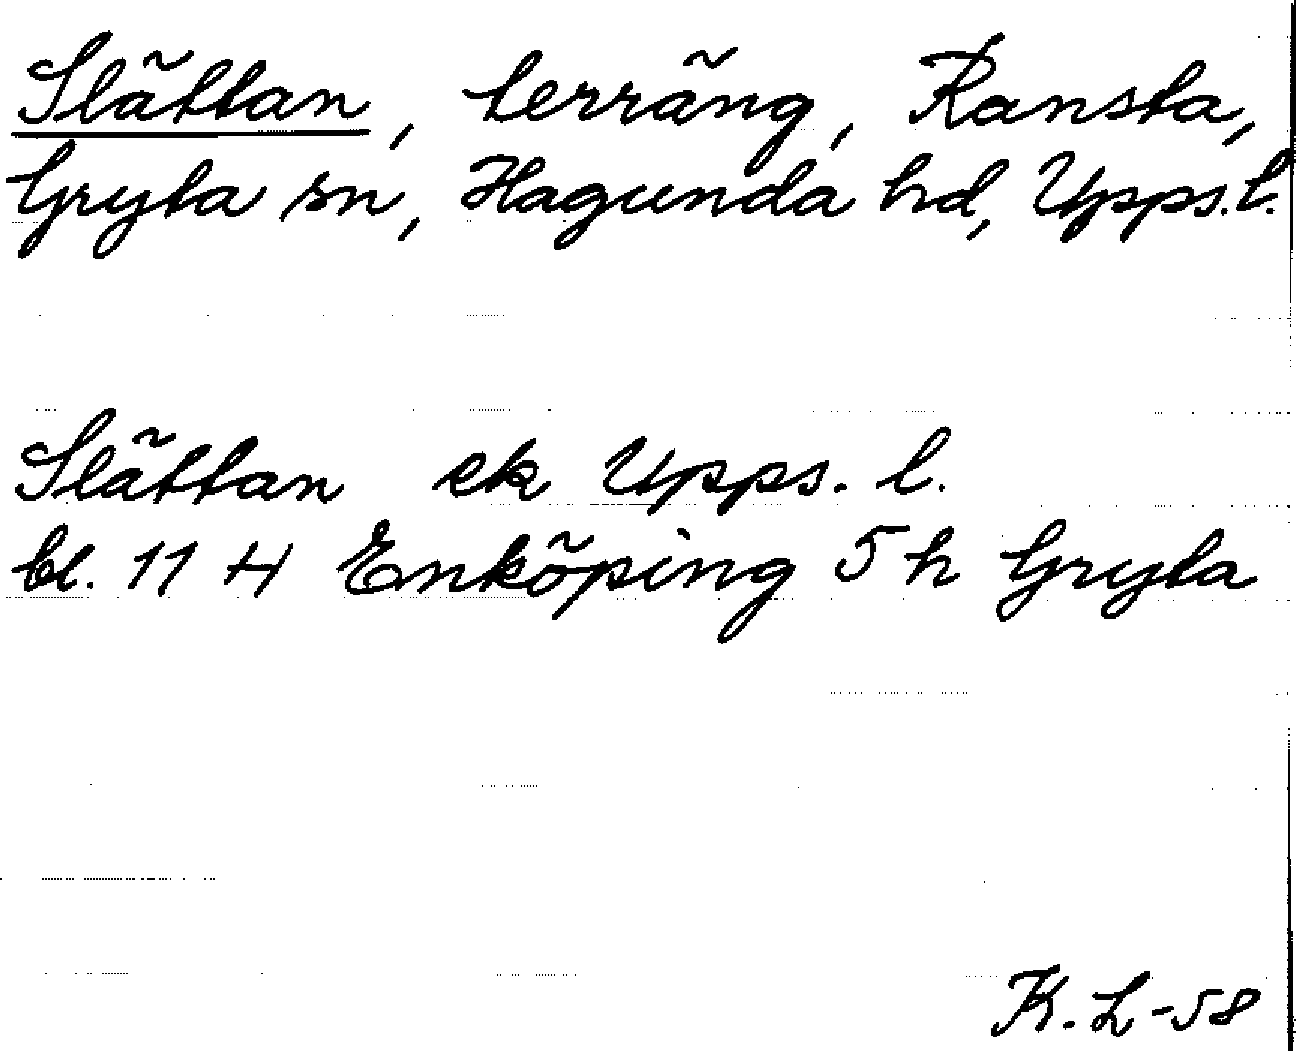 Slättan, terräng, Ransta,
Gryta sn, Hagunda hd, Upps. l.
Slättan ek Upps. l.
bl. 11 H Enköping 5 h Gryta
K. L-58